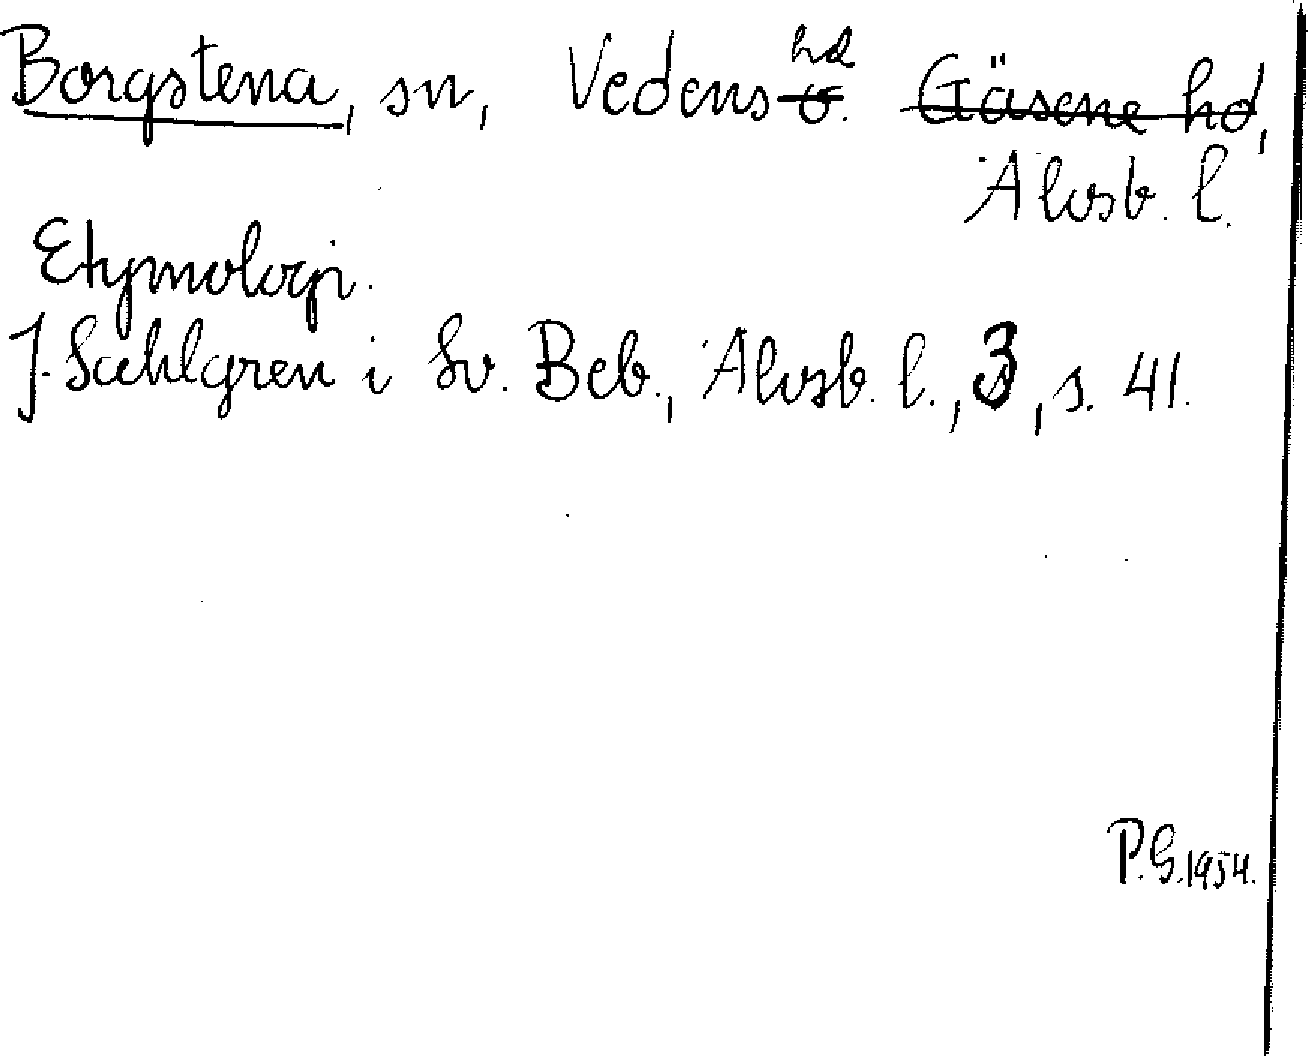 Borgstena, sn, Vedens hd ~~o.~~ ~~Gäsene hd~~,
Älvsb. l.
Etymologi.
J. Sahlgren i Sv. Beb., Älvsb. l., 3, s. 41.
P.G. 1954.